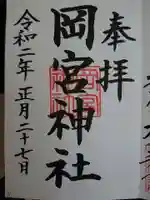 奉拝
岡宮神社
令和二年正月二十七日